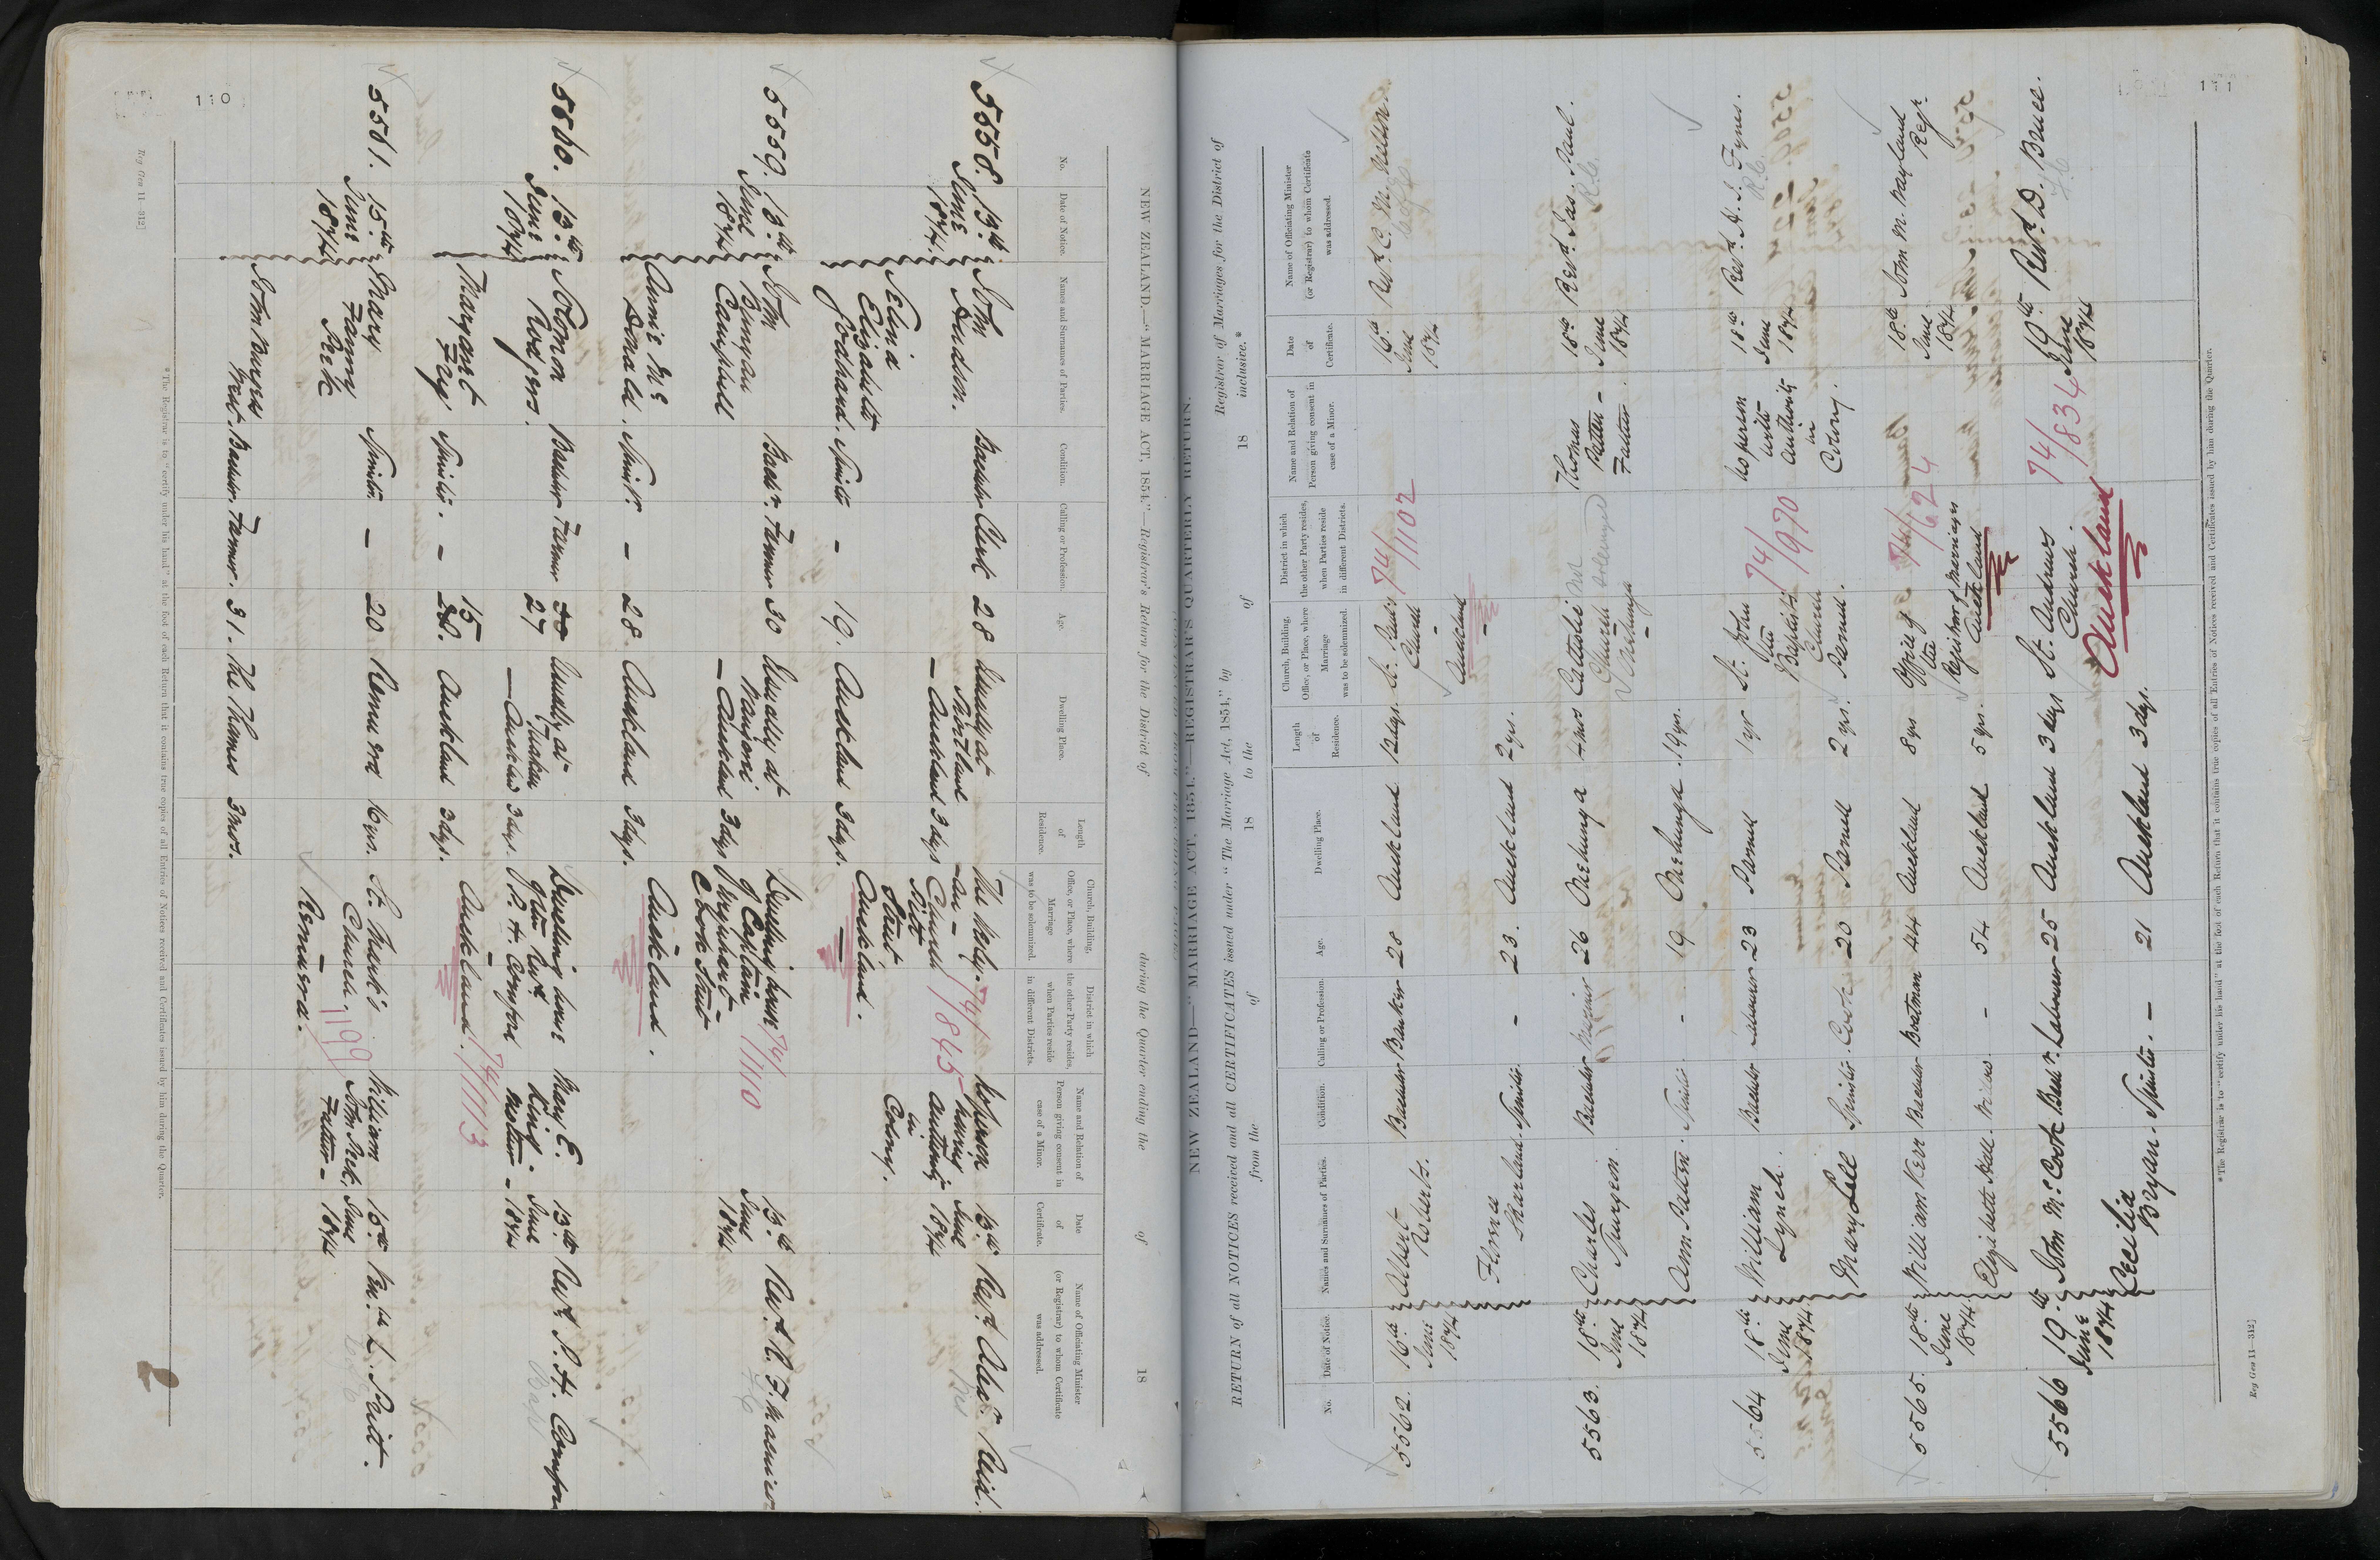 110
NEW ZEALAND.—"MARRIAGE ACT, 1854."—Registrar's Return for the District of during the Quarter ending the of 18
No.
Date of Notice.
Names and Surnames of Parties.
Condition.
Calling or Profession.
Age.
Dwelling Place.
Length of Residence.
Church, Building, Office, or Place, where Marriage was to be solemnized.
District in which the other Party resides, when Parties reside in different Districts.
Name and Relation of Person giving consent in case of a Minor.
Date of Certificate.
Name of Officiating Minister (or Registrar) to whom Certificate was addressed.
5558. 13th June 1874.
John Hudson. Bachelor Clerk 28 Usually at Shortland – Auckland 3 days
Selina Elizabeth Goodhand. Spinster – 19. Auckland 3 dys.
The Wesleyan Church Pitt Street Auckland.
74/845
No person having authority in Colony.
13th June 1874
Revd. Alexr. Reid.
5559. 13th June 1874
John Bunyan Campbell Bachr. Farmer 30 Usually at Mangonui – Auckland 3 dys
Annie McDonald. Spinsr. – 28. Auckland 3 dys.
Dwelling house of Captain Farquhar Hook Street Auckland.
74/1110
13th June 1874
Revd. R. F. Macnicol
5560. 13th June 1874
Solomon Rodgers. Bachelor Farmer 27 Usually at Tuakau – Auckland 3 dys.
Margaret Fay Spinster. – 15 Auckland 3 dys.
Dwelling house of the Revd P. H. Cornford Auckland.
74/1113
Mary E. King – Mother –
13th June 1874
Revd. P. H. Cornford
5561. 15th June 1874
Mary Fanny Peek Spinster. – 20 Remuera 16 yrs.
John Burgess Trent. Bachelor. Farmer. 31. The Thames 3 mos.
St. Mark's Church. – Remuera.
1199
William John Peek. Father –
15th June 1874
Ven.ble
* The Registrar is to "certify under his hand" at the foot of each Return that it contains true copies of all Entries of Notices received and Certificates issued by him during the Quarter.
Reg Gen 11—312]
111
NEW ZEALAND—"MARRIAGE ACT, 1854."—REGISTRAR'S QUARTERLY RETURN.
RETURN of all NOTICES received and all CERTIFICATES issued under "The Marriage Act, 1854," by Registrar of Marriages for the District of
from the of 18 to the of 18 inclusive.*
No.
Date of Notice.
Names and Surnames of Parties.
Condition.
Calling or Profession.
Age.
Dwelling Place.
Length of Residence.
Church, Building, Office, or Place, where Marriage was to be solemnized.
District in which the other Party resides, when Parties reside in different Districts.
Name and Relation of Person giving consent in case of a Minor.
Date of Certificate.
Name of Officiating Minister (or Registrar) to whom Certificate was addressed.
5562. 16th June 1874
Albert Roberts. Bachelor Banker 28 Auckland 12 dys.
Flora Sharland. Spinster – 23. Auckland 2 yrs.
St. Paul's Church – Auckland –
74/1102
16th June 1874
Revd. C. M. Nelson.
5563. 18th June 1874
Charles Spurgeon Bachelor Mariner 26 Onehunga 4 mos
Ann Patten. Spinster. – 19 Onehunga. 19 yrs.
Catholic Church – Onehunga
not solemnized
Thomas Patten – Father.
18th June 1874
Revd. Jas. Paul.
R.C.
5564 18th June 1874
William Lynch. Bachelor Labourer 23 Parnell 1 yr
Mary Lill Spinster. Cook 20 Parnell 2 yrs.
St. John the Baptist's Church Parnell.
74/970
No person with authority in Colony.
18th June 1874
Revd. H. J. Fynes.
R.C.
5565. 18th June 1874.
William Kerr Bachelor Boatman 44 Auckland 8 yrs
Elizabeth Hall. Widow – 54 Auckland 5 yrs.
Office of the Registrar of Marriages Auckland
74/624
18th June 1874
John M. Wayland Regr.
5566 19th June 1874
John McCook Bachr. Labourer 25 Auckland 3 days
Cecilia Bryan. Spinster. – 21 Auckland 3 dys.
St. Andrews Church.
Auckland
74/834
19th June 1874
Revd. D. Bruce.
* The Registrar is to "certify under his hand" at the foot of each Return that it contains true copies of all Entries of Notices received and Certificates issued by him during the Quarter.
Reg Gen 11—312]